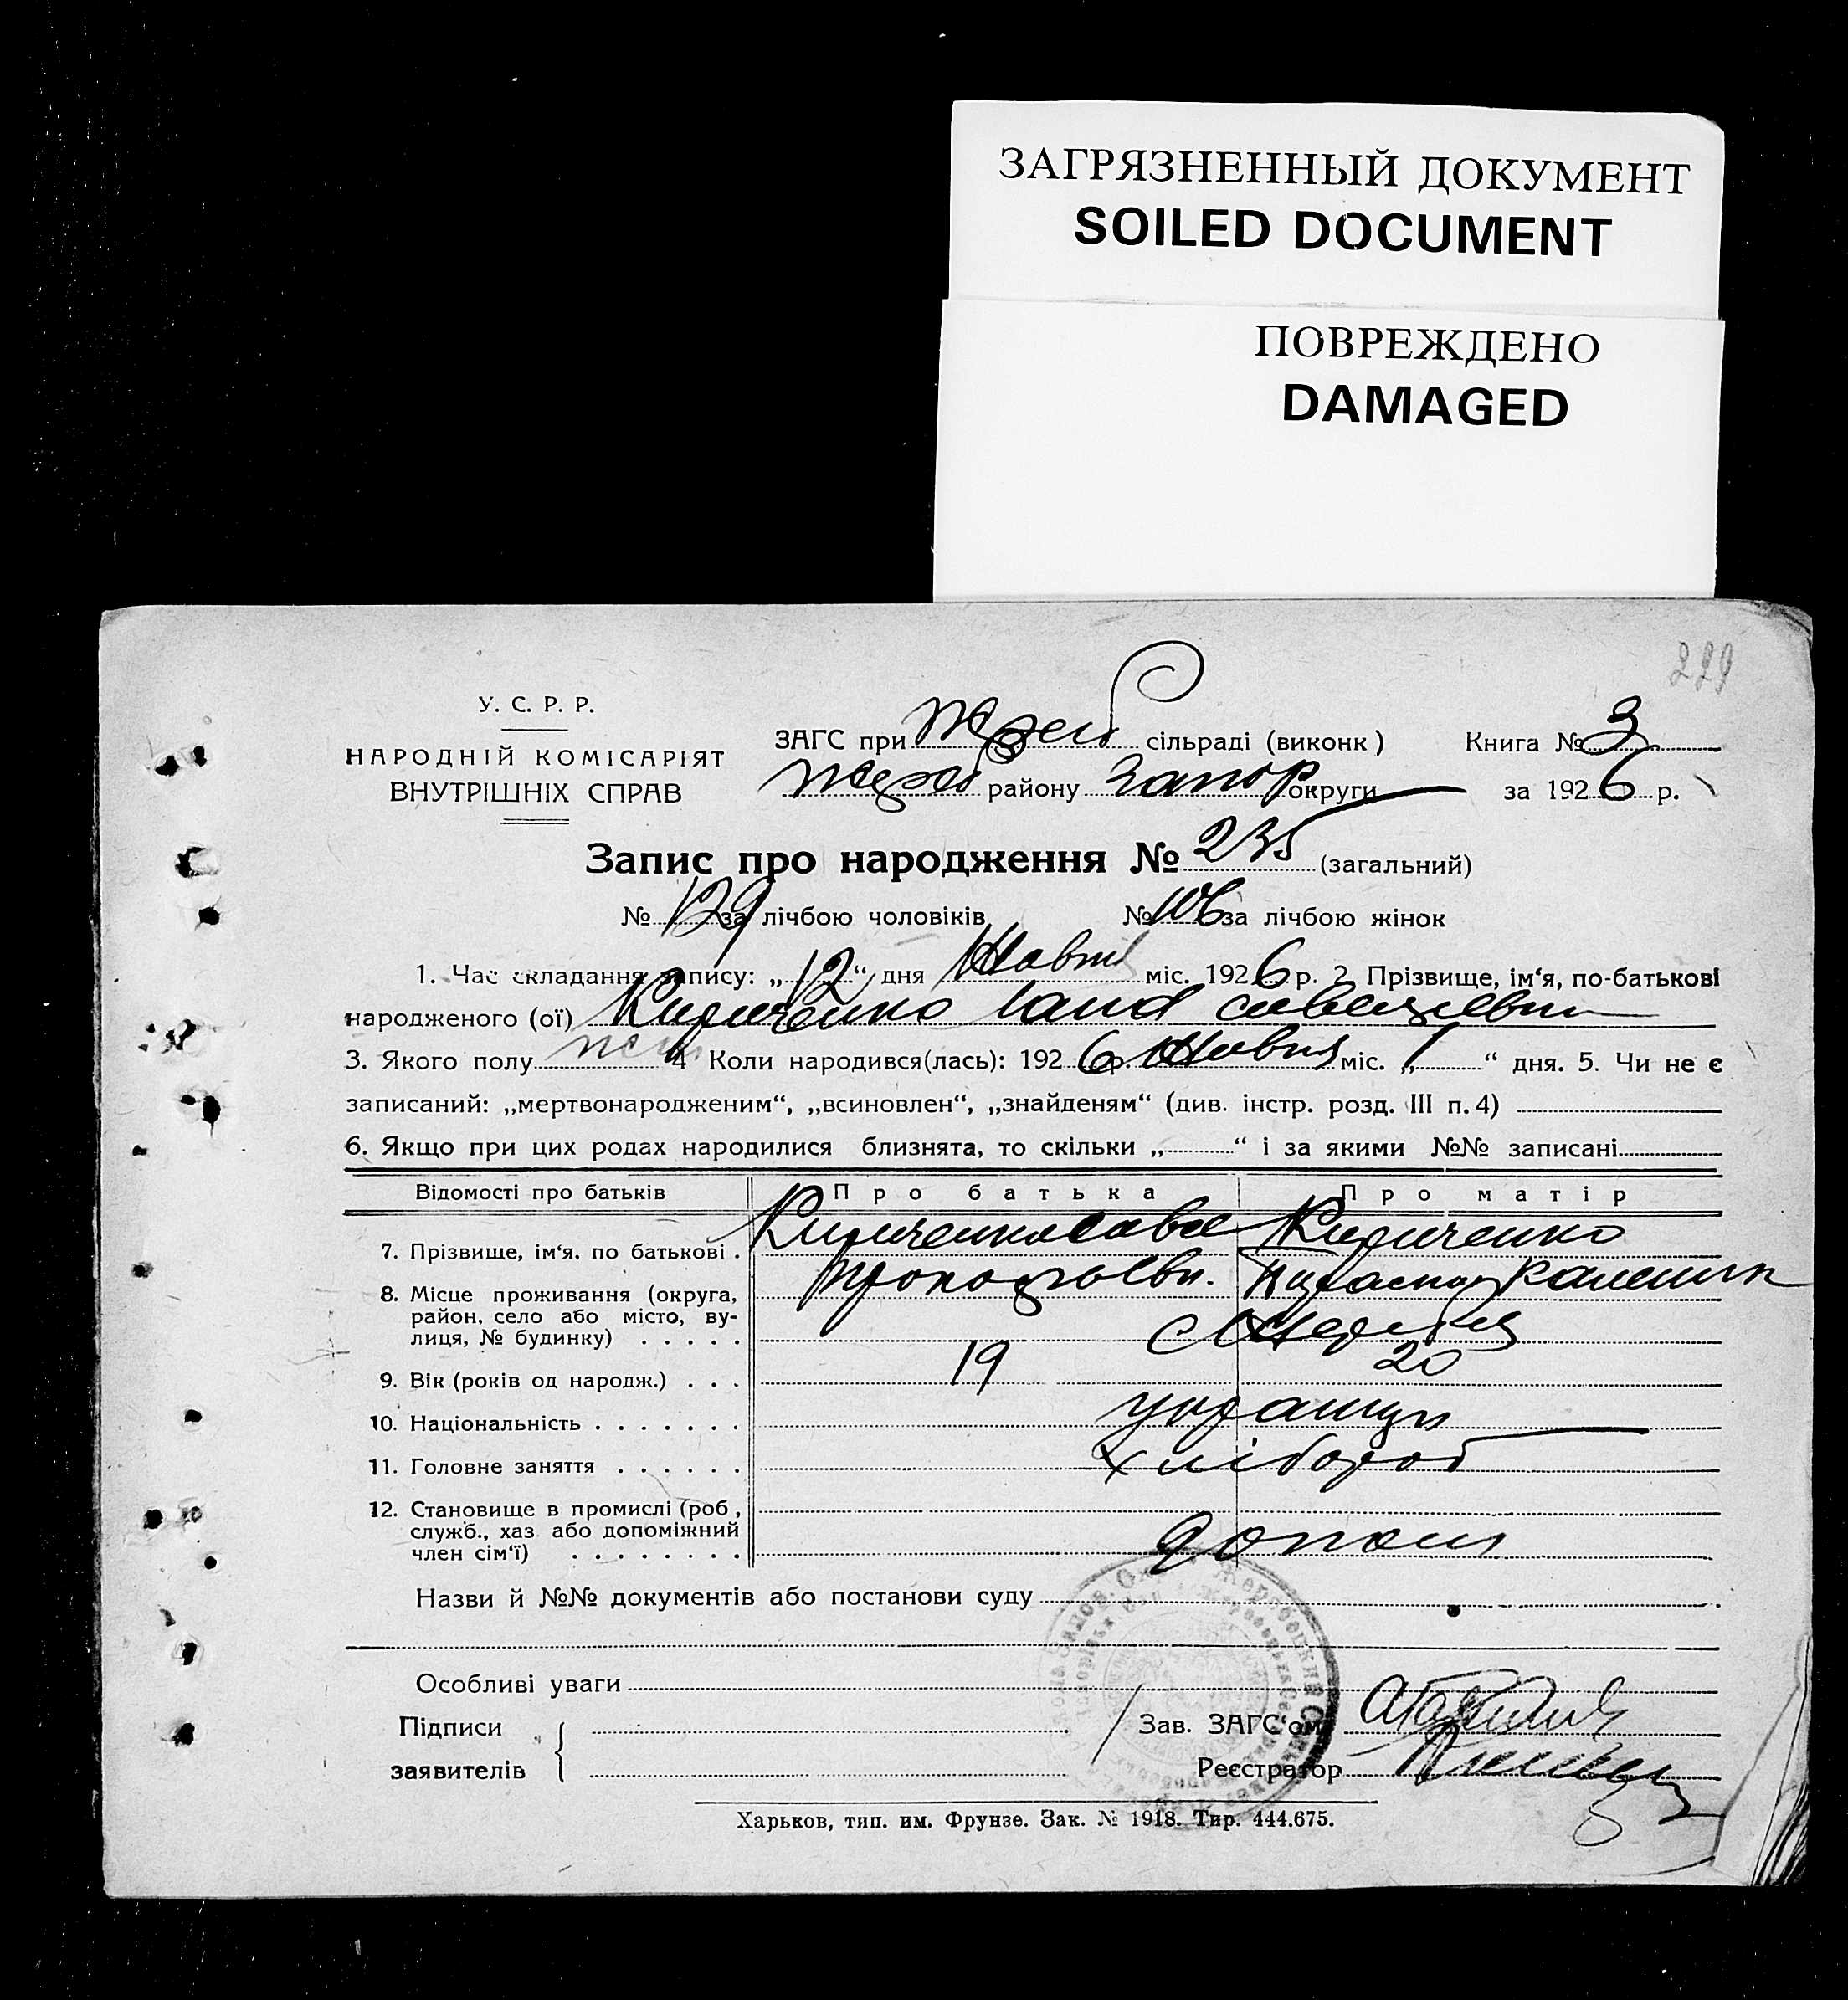 ЗАГРЯЗНЕННЫЙ ДОКУМЕНТ
SOILED DOCUMENT
ПОВРЕЖДЕНО
DAMAGED
229
У. С. Р. Р.
НАРОДНІЙ КОМІСАРІЯТ
ВНУТРІШНІХ СПРАВ
ЗАГС при Жереб сільраді (виконк) Книга № 3
Жереб району Запор округи за 1926 р.
Запис про народження № 235 (загальний)
№ 129 за лічбою чоловіків № 106 за лічбою жінок
1. Час складання запису: „12“ дня Жовтня міс. 1926 р. 2. Прізвище, ім‘я, по-батькові
народженого (ої) Кириченко
3. Якого полу 4 Коли народився(лась): 1926 р. Жовтня міс. „1“ дня. 5. Чи не є
записаний: „мертвонародженим“, „всиновлен“, „знайденям“ (див. інстр. розд. III п. 4)
6. Якщо при цих родах народилися близнята, то скільки „ “ і за якими №№ записані
Відомості про батьків Про батька Про матір
7. Прізвище, ім‘я, по батькові . Кириченко Сава Кириченко
Прокофьевич
8. Місце проживання (округа,
район, село або місто, ву-
лиця, № будинку) . . . . .
9. Вік (років од народж.) . . . 19 20
10. Національність . . . . . . . украинци
11. Головне заняття . . . . . . хлібороб
12. Становище в промислі (роб,
служб., хаз або допоміжний
член сім‘ї) . . . . . . . . допом
Назви й №№ документів або постанови суду
Особливі уваги
Підписи
заявителів
Зав. ЗАГС‘ом
Реєстратор
Харьков, тип. им. Фрунзе. Зак. № 1918. Тир. 444.675.